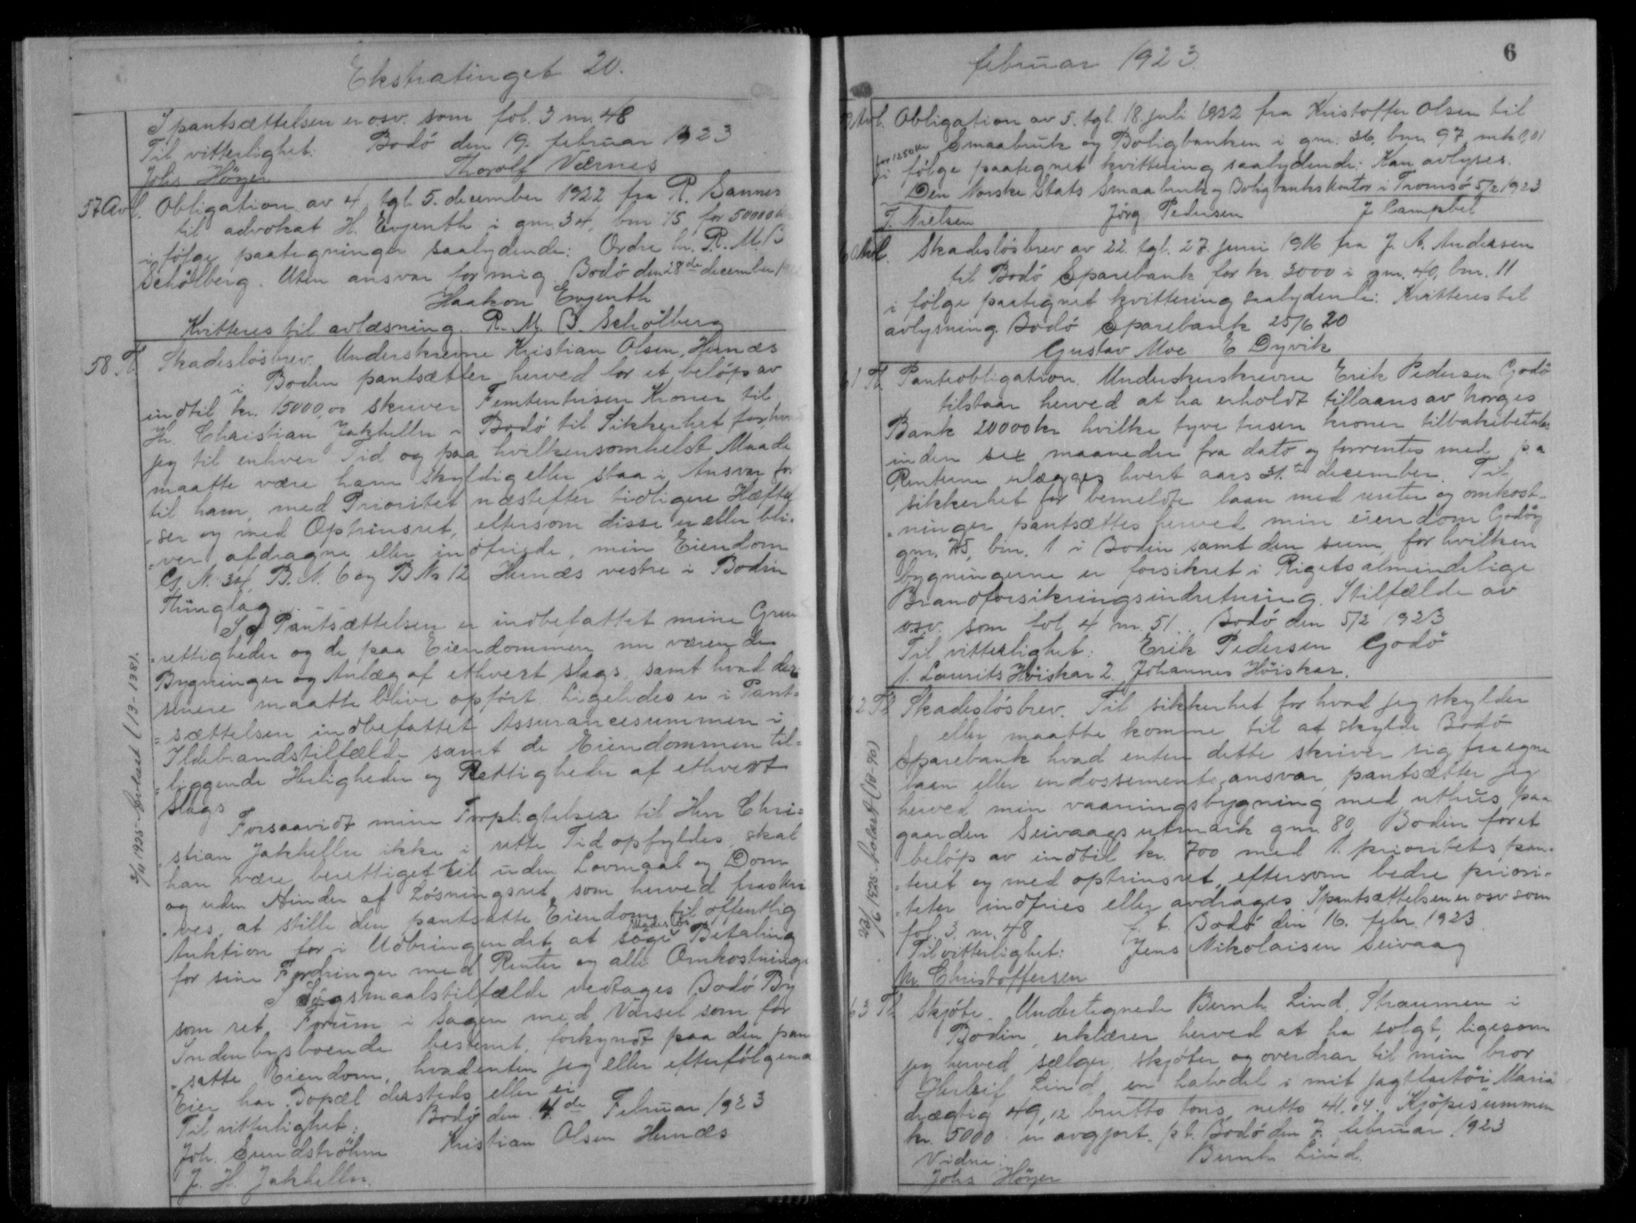 Ekstratinget 20.
I pantsættelsen er osv. som fol. 3 nr. 48
Til vitterlighet: Bodö den 19. februar 1923
Johs Höyer Thorolf Værnes
57 Avl. Obligation av 4, tgl. 5. december 1922 fra R. Sannes
til advokat H. Evjenth i gnr. 34, bnr. 15, for 50000 kr
i fölge paategninger saalydende: Ordre hr. R. M. B
Schölberg. Uten ansvar for mig. Bodö den 28de december
Haakon Evjenth
Kvitteres til avlæsning. R. M. B. Schölberg
58 Tl. Skadeslösbrev. Underskrevne Kristian Olsen, Hernæs
i Bodin pantsætter herved for et belöp av
indtil kr. 15000,00 skriver Femtentusen Kroner til
Hr. Christian Jakhelln i Bodö til Sikkerhet for, hvad
jeg til enhver Tid og paa hvilkensomhelst Maade
maatte være ham skyldig eller staa i Ansvar for
til ham, med Prioritet næstefter tidligere Hæftel-
ser og med Optrinsret, eftersom disse er eller bli-
ver afdragne eller inöfriede, min Eiendom
G. N. 34, B. N. 6 og B. Nr 12 Hernæs vestre i Bodin
Thinglag.
I Pantsættelsen er indbefattet mine Grun
rettigheder og de paa Eiendommen nu værende
Bygninger og Anlæg af ethvert slags, samt hvad der
senere maatte blive opfört. Ligeledes er i Pant-
sættelsen indbefattet Assurancesummen i
Ildebrandstilfælde samt de Eiendommen til-
liggende Herligheder og Rettigheder af ethvert
Slags
Forsaavidt mine Forpligtelser til Herr Chri-
stian Jakhelln ikke i rette Tid opfyldes, skal
han være berettiget til uden Lovmaal og Dom
og uden Hinder af Lösningsret, som herved fraskri
ves, at stille den pantsatte Eiendom til offentlig
Auktion for i Udbringendet at söge Betaling
for sine Fordringer med Renter og alle Omkostninge
I Sögsmaalstilfælde vedtages Bodö By
som ret Forum i Sagen med Varsel som for
Indenbysboende bestemt, forkyndt paa den pan
satte Eiendom, hvadenten jeg eller efterfölgende
Eier har Bopæl dersteds eller ei
Til vitterlighet: Bodö den 4de Februar 1923
Joh. Sundströhm Kristian Olsen Hernæs
J. H. Jakhelln.
februar 1923
6
Avl. Obligation av 5. tgl. 18. juli 1922 fra Kristoffer Olsen til
for 1250 kr Smaabruk og Boligbanken i gnr. 36, bnr. 97, mk 0,01
i fölge paategnet kvittering saalydende: Kan avlyses.
Den Norske Stats Smaabruk og Boligbanks kontor i Tromsö 5/2 1923
T. Nielsen Jörg Pedersen J. Campbel
Avl. Skadeslösbrev av 22. tgl. 27 juni 1916 fra J. A. Andersen
til Bodö Sparebank for kr. 3000 i gnr. 40, bnr. 11
i fölge paategnet kvittering saalydende: Kvitteres til
avlysning. Bodö Sparebank 25/6 20
Gustav Moe E Dyvik
61 Tl. Panteobligation. Underskerskrevne Erik Pedersen Godö
tilstaar herved at ha erholdt tillaans av Norges
Bank 20000 kr hvilke tyve tusen kroner tilbakebetales
inden sex maaneder fra dato og forrentes med
Renterne erlægges hvert aars 31.te december. Til
sikkerhet for bemeldte laan med renter og omkost-
ninger pantsættes herved min eiendom Godöy
gnr. 75, bnr. 1 i Bodin samt den sum, for hvilken
bygningerne er forsikret i Rigets almindelige
Brandforsikringsindretning. I tilfælde av
osv. som fol 4 nr. 51. Bodö den 5/2 1923
Til vitterlighet: Erik Pedersen Godö
1. Laurits Höiskar 2. Johannes Höiskar.
62 Tl Skadeslösbrev. Til sikkerhet for hvad jeg skylder
eller maatte komme til at skylde Bodö
Sparebank hvad enten dette skriver sig fra egne
laan eller endossements ansvar, pantsætter jeg
herved min vaaningsbygning med uthus paa
gaarden Seivaags utmark gnr. 80 Bodin for et
belöp av indtil kr. 700 med 1. prioritets pan-
teret og med optrinsret, eftersom bedre priori-
teter indfries eller avdrages. I pantsættelsen er osv som
fol. 3 nr. 48 p. t. Bodö den 16. febr. 1923.
Til vitterlighet: Jens Nikolaisen Seivaag
M. Christoffersen
63 Tl Skjöte. Undertegnede Bernh. Lind, Straumen i
Bodin, erklærer herved at ha solgt, ligesom
jeg herved sælger, skjöter og overdrar til min bror
Herleif Lind en halvdel i mit jagtfartöi Maria
drægtig 49,12 brutto tons, netto 41.04. Kjöpesummen
kr. 5000 er avgjort. p. t. Bodö den 7. februar 1923
Vidne: Bernh Lind
Johs Höyer